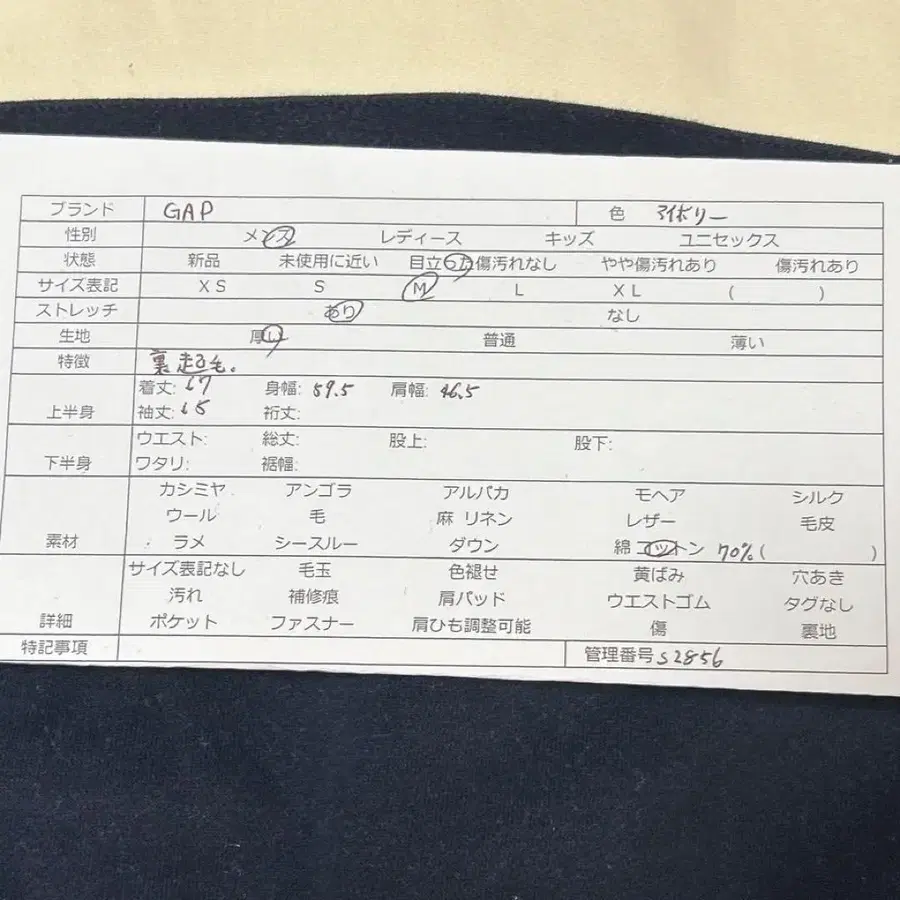 ブランド GAP 色 アイボリー
性別 メンズ レディース キッズ ユニセックス
状態 新品 未使用に近い 目立った傷汚れなし やや傷汚れあり 傷汚れあり
サイズ表記 XS S M L XL ( )
ストレッチ あり なし
生地 厚い 普通 薄い
特徴 裏起毛。
上半身 着丈: 67 身幅: 59.5 肩幅: 46.5
袖丈: 65 裄丈:
下半身 ウエスト: 総丈: 股上: 股下:
ワタリ: 裾幅:
素材 カシミヤ アンゴラ アルパカ モヘア シルク
ウール 毛 麻 リネン レザー 毛皮
ラメ シースルー ダウン 綿 コットン 70% ( )
詳細 サイズ表記なし 毛玉 色褪せ 黄ばみ 穴あき
汚れ 補修痕 肩パッド ウエストゴム タグなし
ポケット ファスナー 肩ひも調整可能 傷 裏地
特記事項 管理番号 S2856